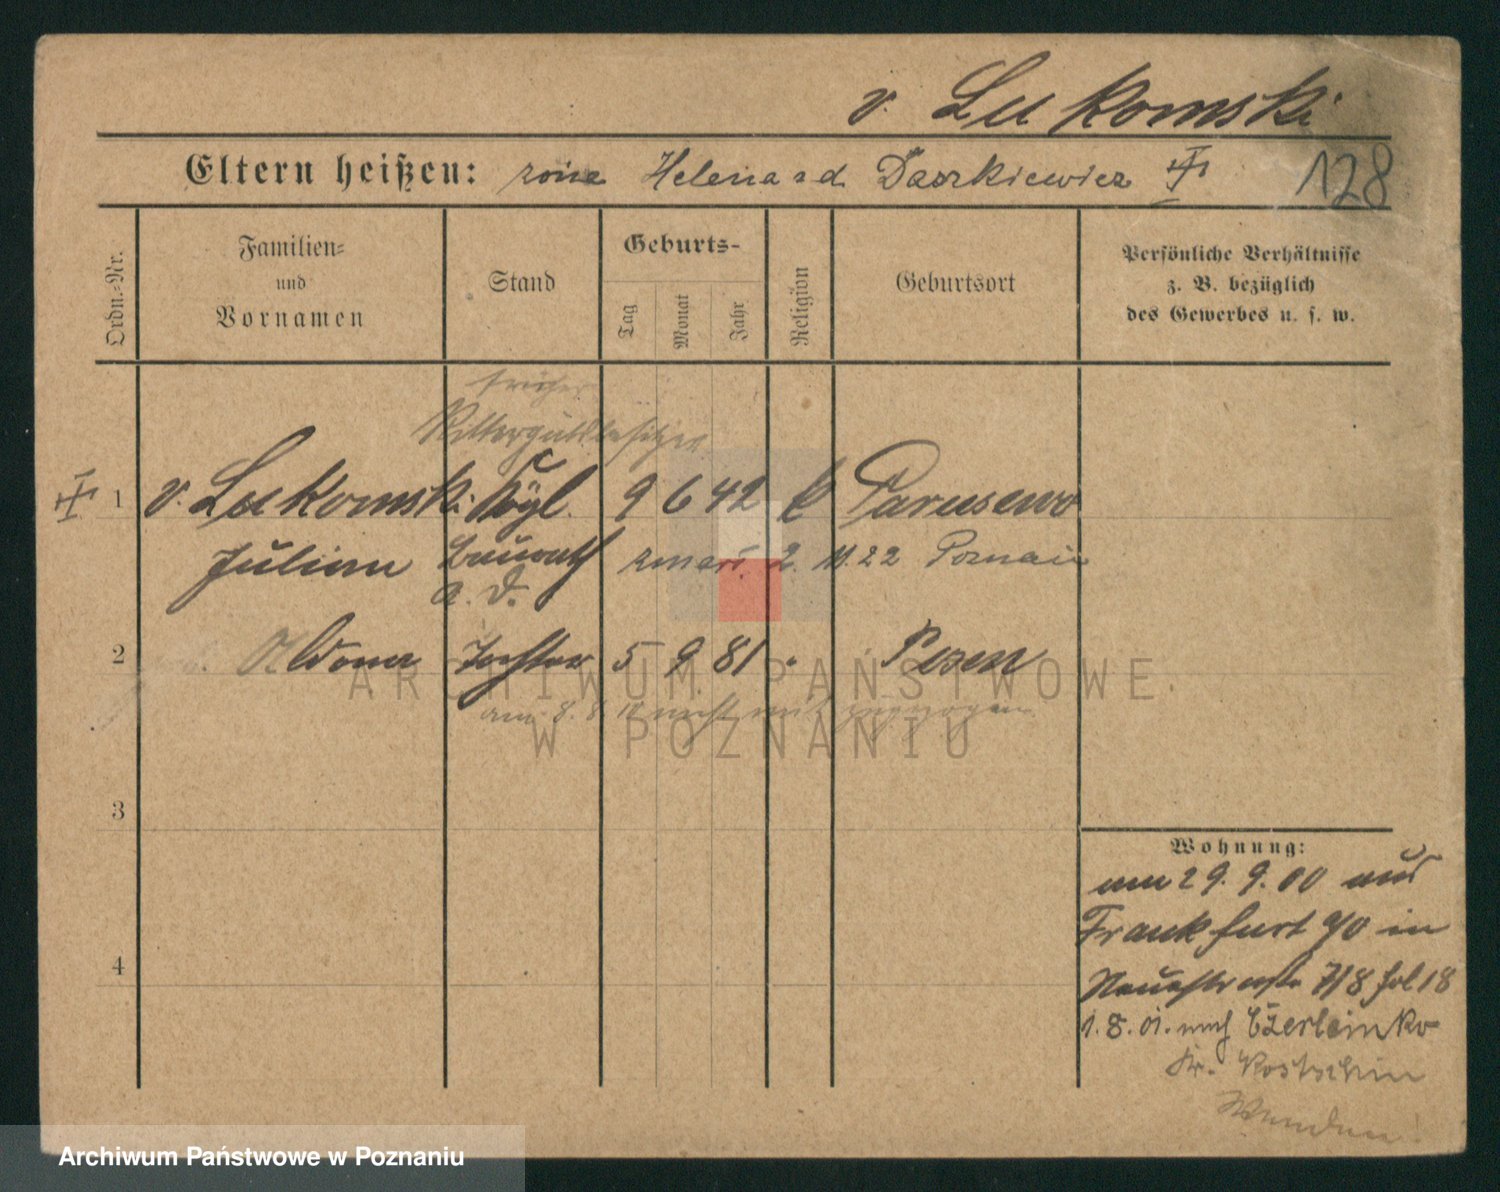 v. Lukomski
Eltern heißen: Helena a d Daszkiewicz 128
Ordn.-Nr.
Familien-
und
Vornamen
Stand
Geburts-
Tag
Monat
Jahr
Religion
Geburtsort
Persönliche Verhältnisse
z. B. bezüglich
des Gewerbes u. s. w.
früher
Rittergutsbesitzer
1 v. Lukomski Kgl. 9 6 42 k Parusewo
Julian Baurath zmarł 2. 11.22 Poznań
a. D.
2 Aldona Tochter 5 9 81 " Posen
am 8. 8. nicht mit zugezogen
ARCHIWUM PAŃSTWOWE
W POZNANIU
3
4
Wohnung:
am 29. 9. 00 aus
Frankfurt a/O in
Neuestraße 7/8 fol 18
1. 8. 01. nach Czerleinko
Kr. Kostschin
Archiwum Państwowe w Poznaniu